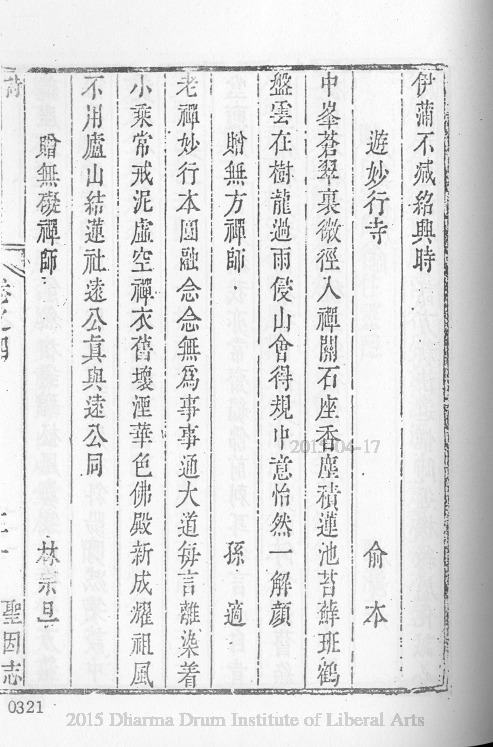 伊蒲不減紹興時
遊妙行寺　俞本
中峯蒼翠裏微徑入禪關石座香塵積蓮池苔蘚班鶴
盤雲在樹龍過雨侵山會得規中意怡然一解顏
贈無方禪師　孫適
老禪妙行本圓融念念無為事事通大道每言離染着
小乘常戒泥虛空禪衣舊壞湮華色佛殿新成耀祖風
不用廬山結蓮社遠公眞與遠公同
贈無礙禪師　林宗旦
聖因志
0321
2015-04-17
2015 Dharma Drum Institute of Liberal Arts